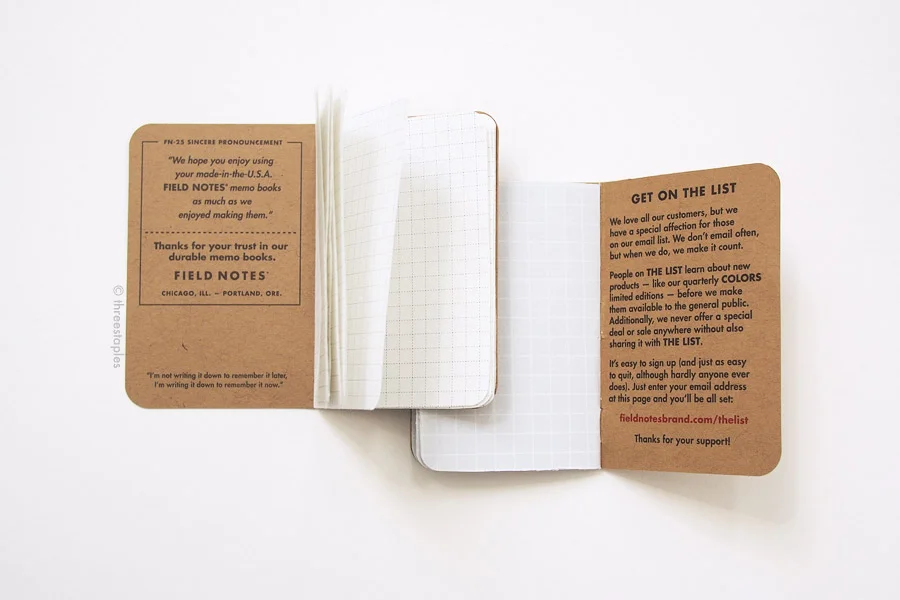 FN-25 SINCERE PRONOUNCEMENT
"We hope you enjoy using
your made-in-the-U.S.A.
FIELD NOTES® memo books
as much as we
enjoyed making them."
Thanks for your trust in our
durable memo books.
FIELD NOTES®
CHICAGO, ILL. — PORTLAND, ORE.
"I'm not writing it down to remember it later,
I'm writing it down to remember it now."
© threestaples
GET ON THE LIST
We love all our customers, but we
have a special affection for those
on our email list. We don't email often,
but when we do, we make it count.
People on THE LIST learn about new
products — like our quarterly COLORS
limited editions — before we make
them available to the general public.
Additionally, we never offer a special
deal or sale anywhere without also
sharing it with THE LIST.
It's easy to sign up (and just as easy
to quit, although hardly anyone ever
does). Just enter your email address
at this page and you'll be all set:
fieldnotesbrand.com/thelist
Thanks for your support!